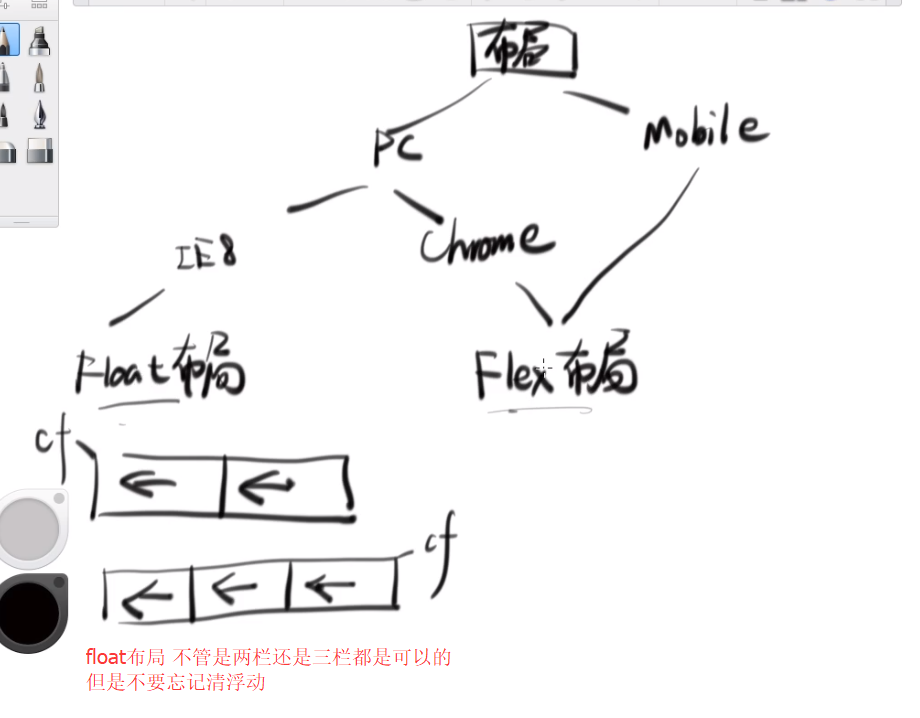 布局
PC
Mobile
IE8
Chrome
Float布局
Flex布局
cf
cf
float布局 不管是两栏还是三栏都是可以的
但是不要忘记清浮动